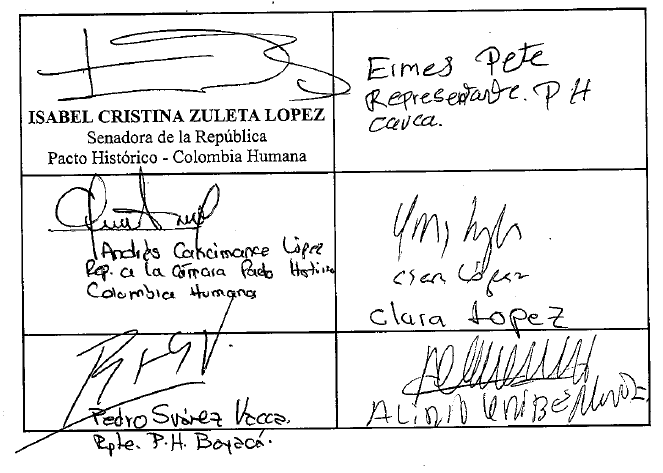 ISABEL CRISTINA ZULETA LOPEZ
Senadora de la República
Pacto Histórico - Colombia Humana
Eimes Pete
Representante. P H
Cauca.
Andrés Cancimance López
Rep. a la Cámara Pacto Histórico
Colombia Humana
Clara López
Clara Lopez
Pedro Suárez Vacca.
Rpte. P.H. Boyacá.
ALIRIO URIBE MUÑOZ